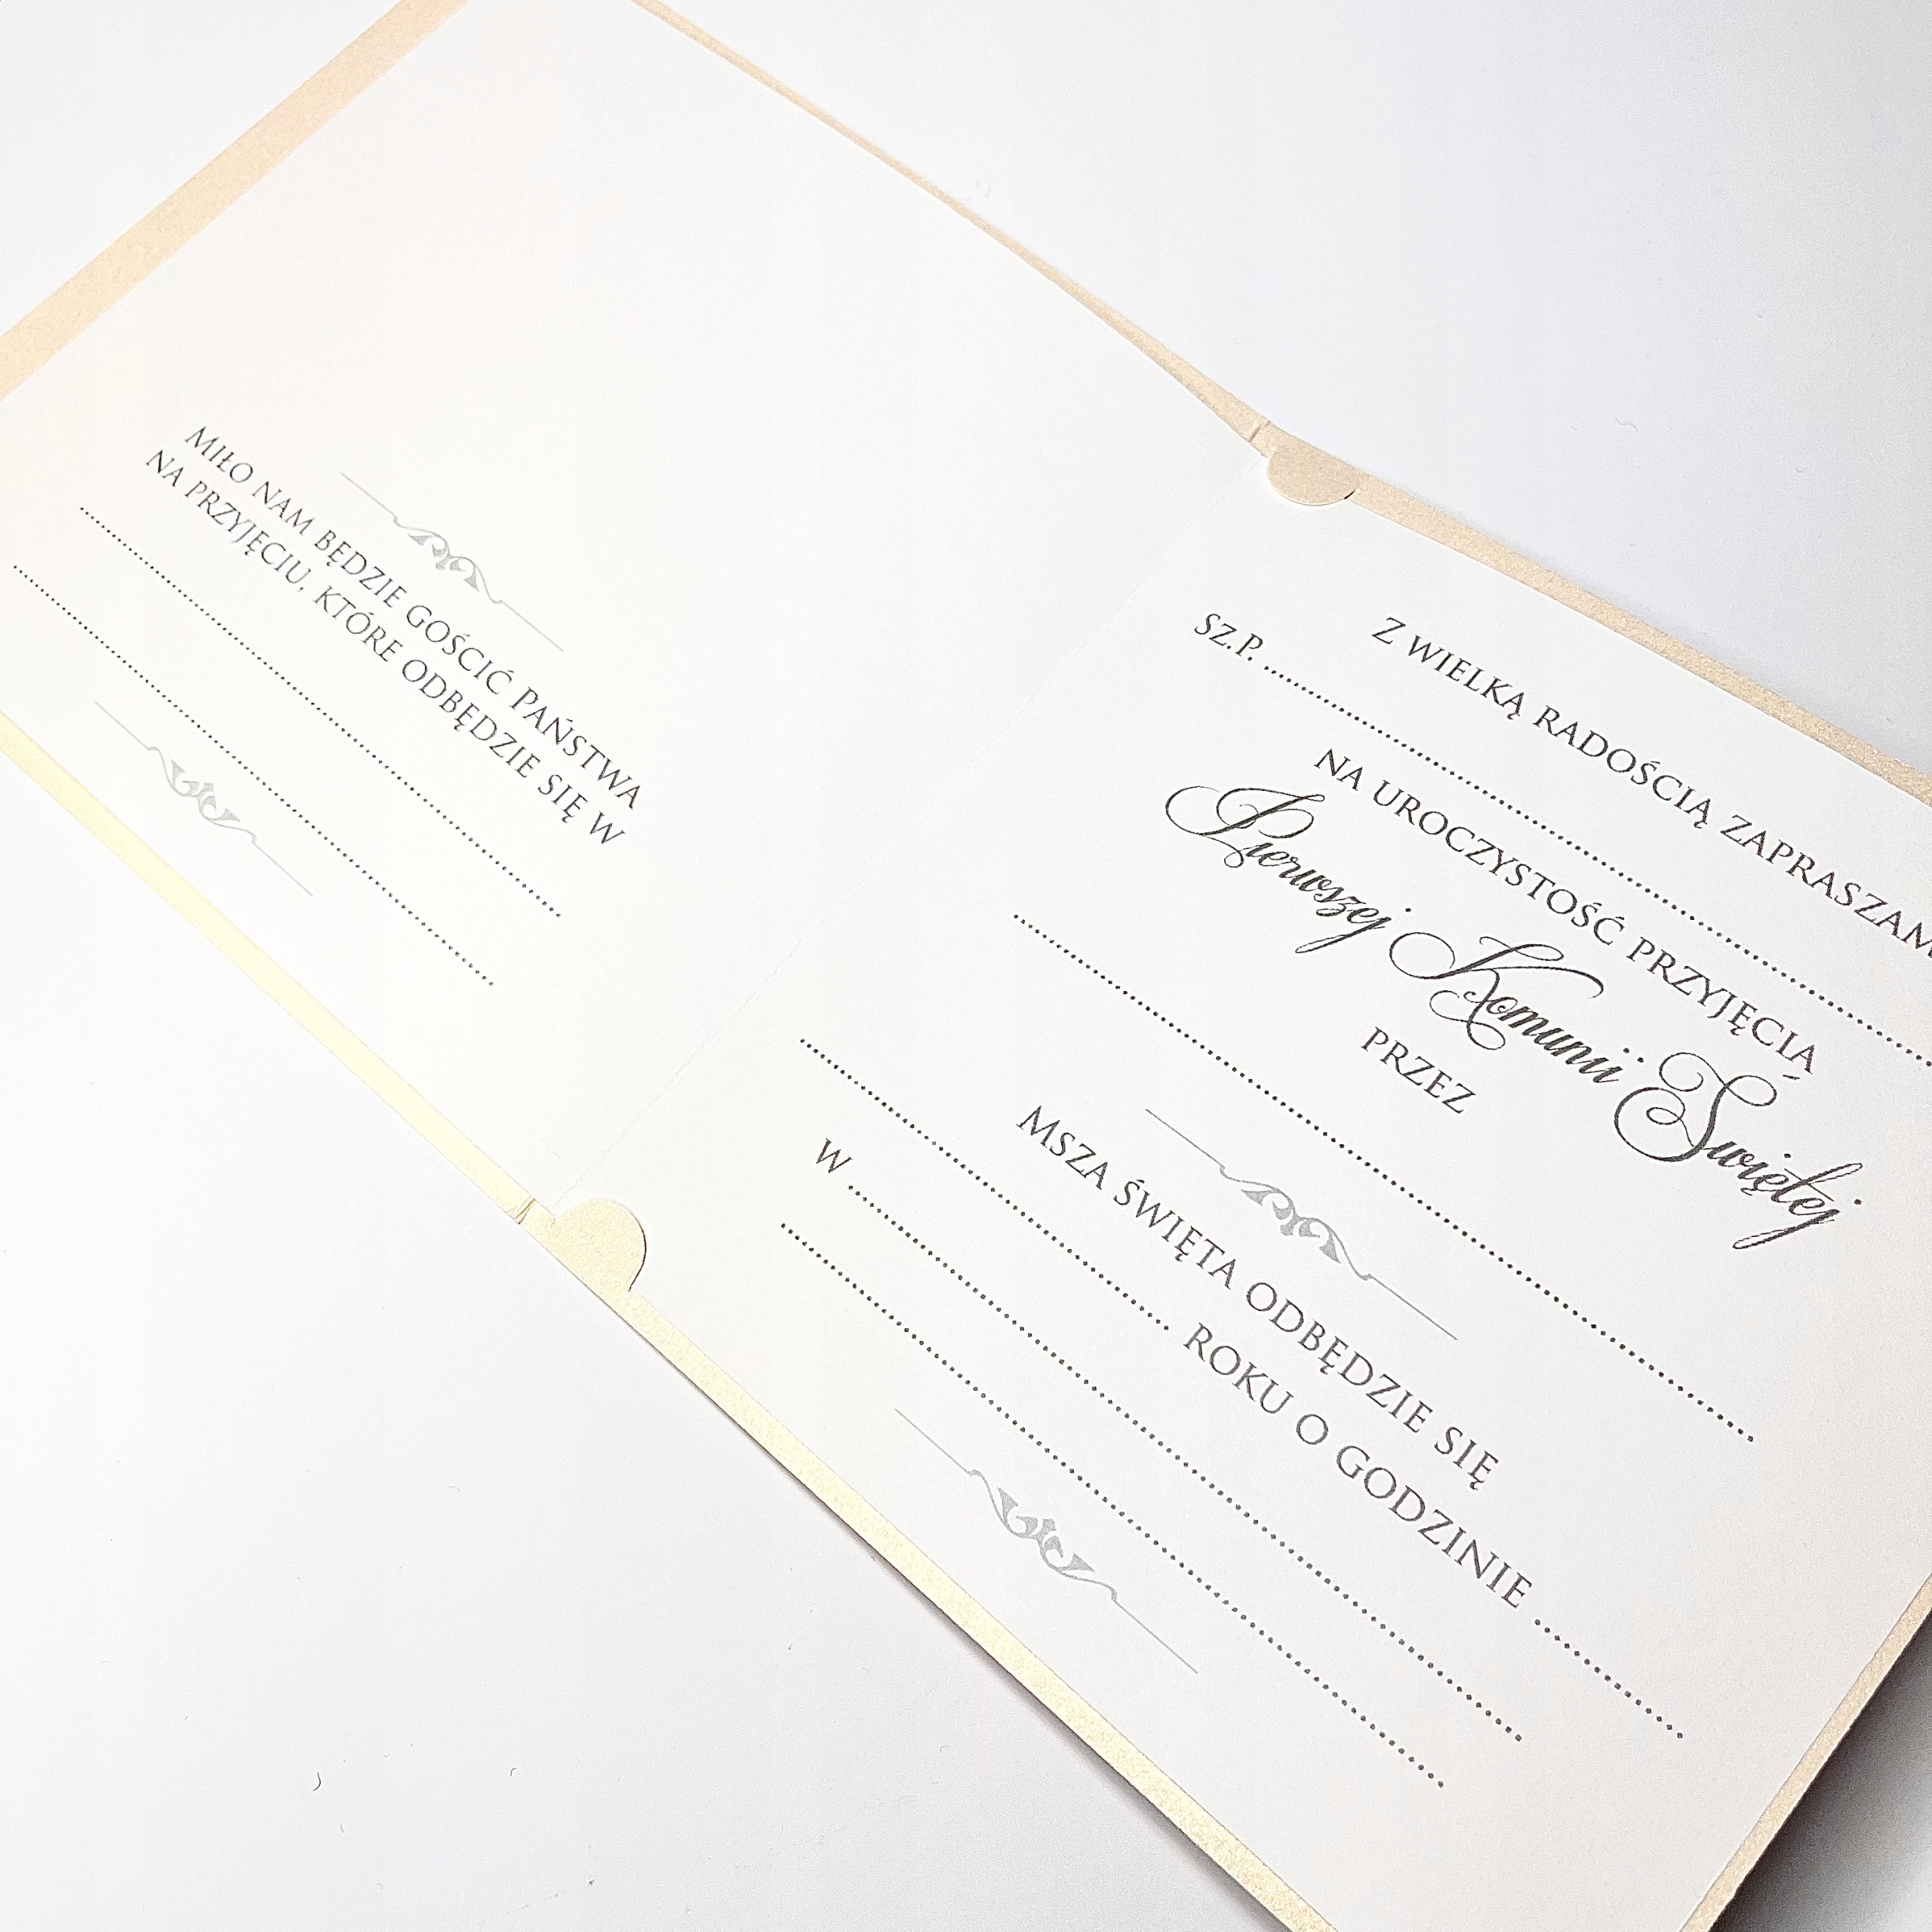 MIŁO NAM BĘDZIE GOŚCIĆ PAŃSTWA
NA PRZYJĘCIU, KTÓRE ODBĘDZIE SIĘ W
Z WIELKĄ RADOŚCIĄ ZAPRASZAM
SZ.P. ........................................
NA UROCZYSTOŚĆ PRZYJĘCIA
Pierwszej Komunii Świętej
PRZEZ
MSZA ŚWIĘTA ODBĘDZIE SIĘ
........................................ ROKU O GODZINIE ...............
W ........................................